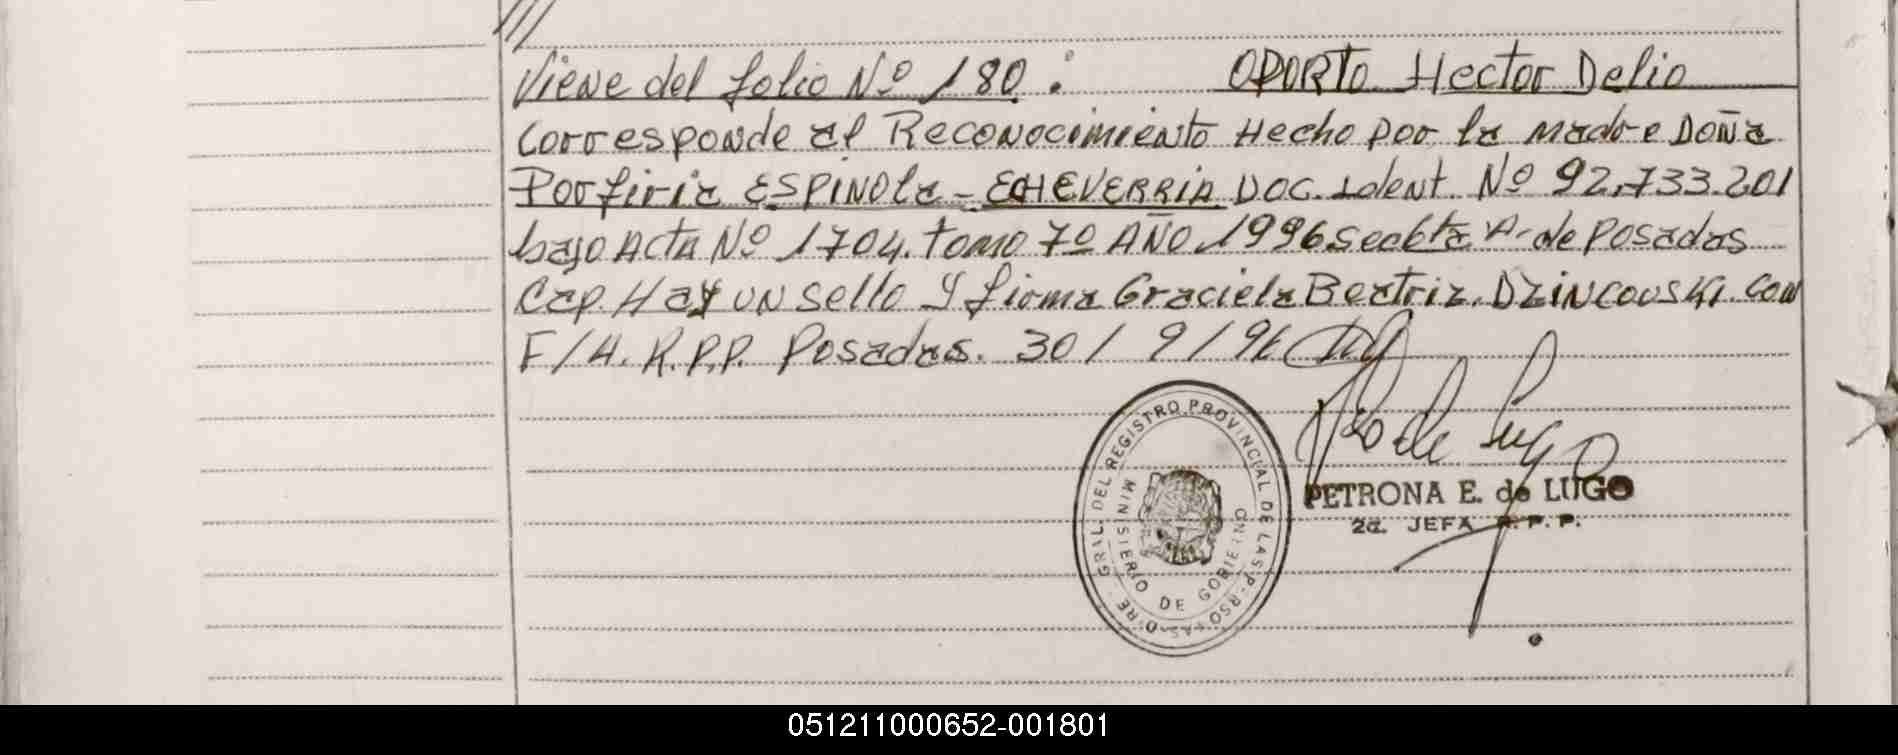 ///
Viene del folio Nº 180: OPORTO Hector Delio
Corresponde al Reconocimiento Hecho por la madre Doña
Porfiria ESPINOLA - ECHEVERRIA DOC. Ident. Nº 92.733.201
bajo Acta Nº 1704. Tomo 7º AÑO 1996 Secc A. de Posadas
Cap. Hay un sello y firma Graciela Beatriz. DZINCOUSKI. Con
F/H. R.P.P. Posadas. 30/9/96
DIRE. GRAL. DEL REGISTRO PROVINCIAL DE LAS PERSONAS
MINISTERIO DE GOBIERNO
PETRONA E. de LUGO
2a. JEFA R. P. P.
051211000652-001801